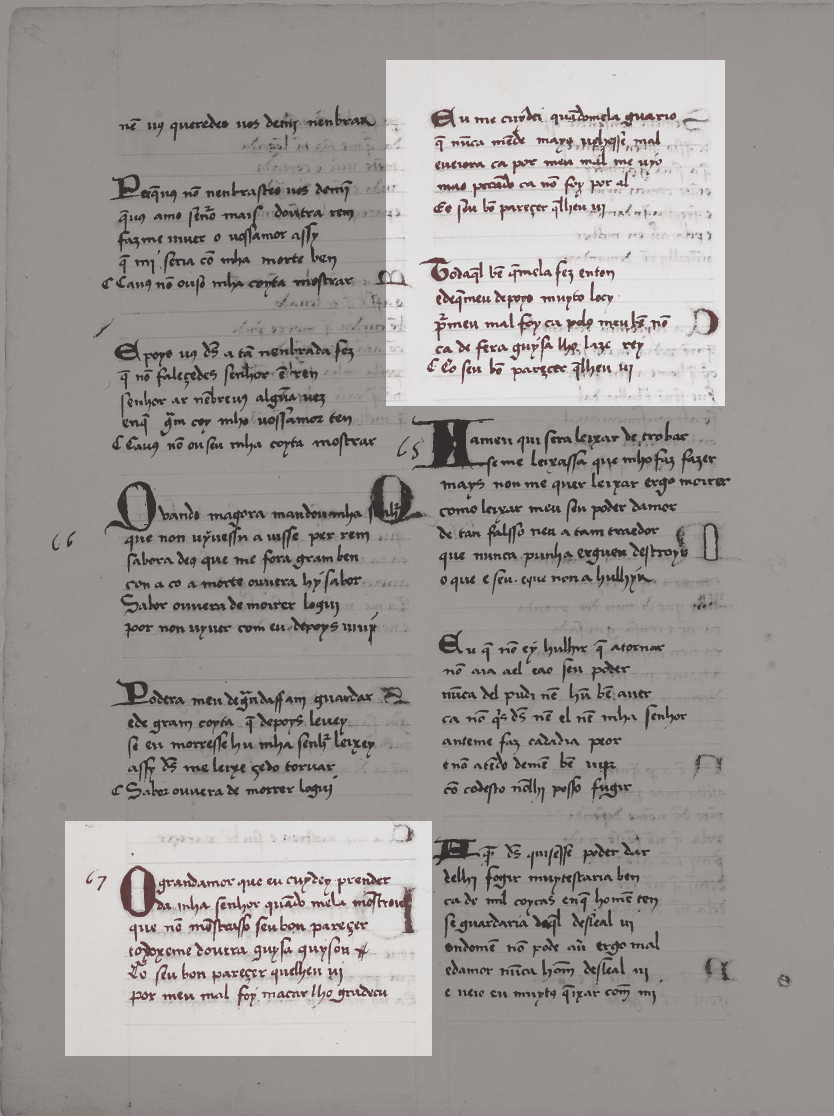 nẽ uꝯ queredes uos demĩ nenbrar
Perq̃uꝯ nõ nenbrastes uos demĩ
q̃uꝯ amo senor̃ mais doutra rem
fazme uiuer o uossamor assy
q̃ mi seria cõ mha morte ben
Cauꝯ nõ ouso mha coyta mostrar
E poys uꝯ ds̃ a tã nenbrada fez
q̃ nõ faleçedes senhor ẽ ren
senhor ar nẽbreuꝯ algũa uez
enq̃ g̃m coy mho uossamor ten
Cauꝯ nõ ouseu mha coyta mostrar
66
Quando magora mandou mha senhr̃
que non uyuessẽ a uisse per rem
sabora deꝯ que me fora gram ben
con a co a morte ouuera hy sabor
Sabor ouuera de moirer logui
por non uyuer com eu depoys uiuj̃
Podera meu deg̃ndaffam guardar
ede gram coyta q̃ depoys leuey
se eu morresse hu mha senhr̃ leixey
assy ds̃ me leixe çedo tornar
Sabor ouuera de morrer logui
67
O grandamor que eu cuydey prender
da mha senhor quãdo mela mostrou
que nõ mõstrasso seu bon pareçer
toḋoxeme doutra guysa guysou
Eo seu bon pareçer quelheu ui
por meu mal foy macar lho gradecu
Eu me cuydei quãdomela guario
q̃ nũca mẽde mayꝯ uehesse mal
eueiora ca por meu mal me uyo
mao pecado ca nõ foy por al
Eo seu bõ pareçer q̃lheu ui
Todaq̃l bẽ q̃mela fez enton
edeq̃meu depoys muyto loey
pr̃meu mal foy ca polo meu bẽ nõ
ca de fera guysa lho laze rey
Eo seu bõ pareçer q̃lheu ui
65
Ja meu quiséra leixar de trobar
se me leixassa que mho faz fazer
mays non me quer leixar ergo moirer
como leixar meu seu poder damor
de tan falsso neu a tam traedor
que nunca punha erguen destroyr
o que e seu. eque non a hulhyr
Eu q̃ nõ ey hulhir q̃ atornar
nõ aia ael eao seu poder
nũca del pudi nẽ hũ bẽ auer
ca nõ qꝯ ds̃ nẽ el nẽ mha senhor
anteme faz cadadia peor
e nõ atẽdo demẽ bẽ uijr
cõ codesto nõlhj posso fugir
E q̃r ds̃ quisesse poder dar
delhi fogir muytestaria ben
ca de mil coytas enq̃ homẽ ten
se guardaria daq̃l desleal ui
ondomẽ nõ pode auj̃ ergo mal
edamor nũca hom̃ desleal ui
e ueio eu muytꝯ q̃ixar com̃ mi